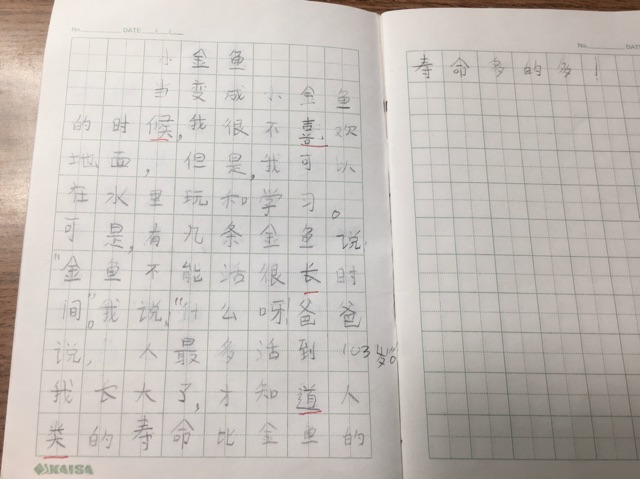 No. DATE / /
小金鱼
当变成小金鱼
的时候,我很不喜欢
地面,但是,我可以
在水里玩和学习。
可是,有几条金鱼说:
"金鱼不能活很长时
间"。我说,"什么呀!爸爸
说,人最多活到103岁。
我长大了,才知道人
类的寿命比金鱼的
KAISA
No. DATE
寿命多的多!